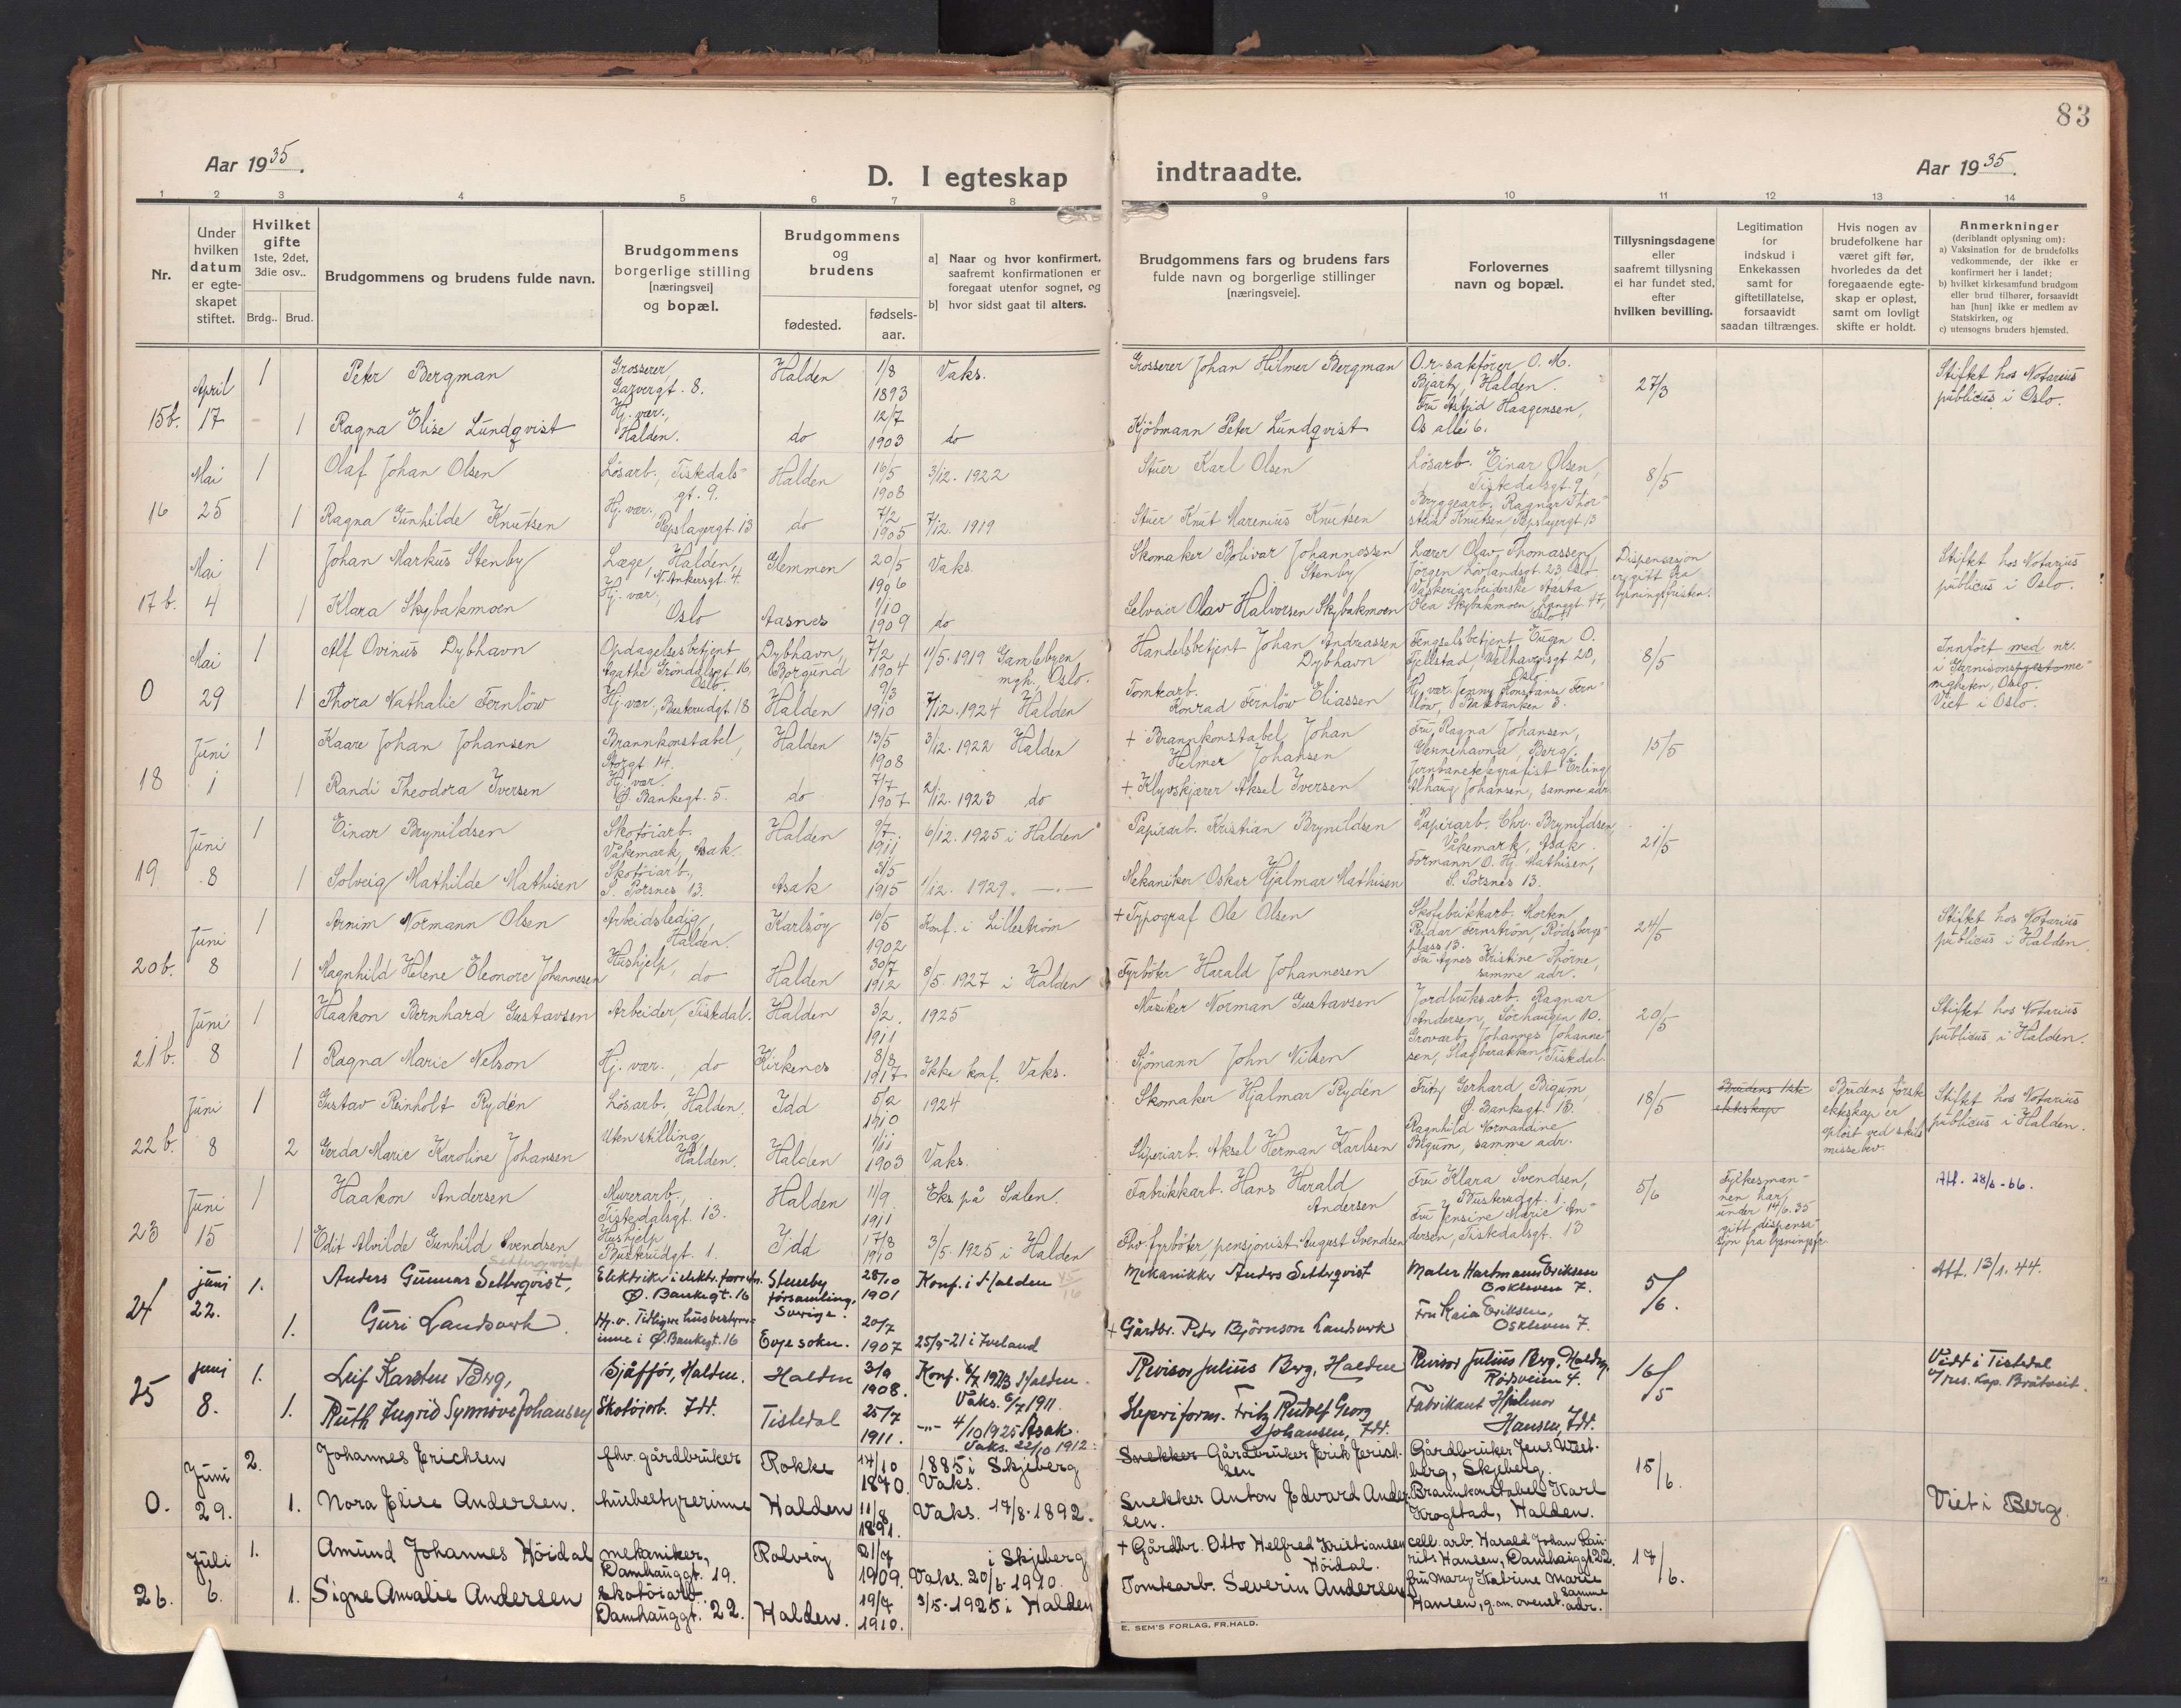 83
Aar 1935.
D. I egteskap indtraadte.
Aar 1935.
1 2 3 4 5 6 7 8 9 10 11 12 13 14
Nr.
Under hvilken datum er egte-skapet stiftet.
Hvilket gifte 1ste, 2det, 3die osv..
Brdg.. Brud.
Brudgommens og brudens fulde navn.
Brudgommens borgerlige stilling [næringsvei] og bopæl.
Brudgommens og brudens
fødested.
fødsels-aar.
a] Naar og hvor konfirmert, saafremt konfirmationen er foregaat utenfor sognet, og
b] hvor sidst gaat til alters.
Brudgommens fars og brudens fars fulde navn og borgerlige stillinger [næringsveie].
Forlovernes navn og bopæl.
Tillysningsdagene eller saafremt tillysning ei har fundet sted, efter hvilken bevilling.
Legitimation for indskud i Enkekassen samt for giftetillatelse, forsaavidt saadan tiltrænges.
Hvis nogen av brudefolkene har været gift før, hvorledes da det foregaaende egte-skap er opløst, samt om lovligt skifte er holdt.
Anmerkninger (deriblandt oplysning om):
a) Vaksination for de brudefolks vedkommende, der ikke er konfirmert her i landet;
b) hvilket kirkesamfund brudgom eller brud tilhører, forsaavidt han [hun] ikke er medlem av Statskirken, og
c) utensogns bruders hjemsted.
15b. April 17
1 Peter Bergman Grosserer, Gazvergt. 8. Halden 1/8 1893 Vaks. Grosserer Johan Hilmer Bergman O.r-sakfører O. M. Bjartz, Halden. 27/3 Stiftet hos Notarius publicus i Oslo.
1 Ragna Elise Lundqvist Hj. vær., Halden. do 12/7 1903 do Kjøbmann Peter Lundqvist Fru Astrid Haagensen, Os allé 6.
16 Mai 25
1 Olaf Johan Olsen Løsarb., Tistedalsgt. 9. Halden 16/5 1908 3/12. 1922 Stuer Karl Olsen Løsarb. Einar Olsen, Tistedalsgt. 9 8/5
1 Ragna Gunhilde Knutsen Hj. vær., Repslagergt. 13 do 7/2 1905 7/12. 1919 Stuer Knut Marenius Knutsen Bryggearb. Ragnar Thorstein Knutsen, Repslagergt. 13
17b. Mai 4
1 Johan Markus Stenby Læge, Halden, N. Ankersgt. 4. Glemmen 20/5 1906 Vaks. Skomaker Bolivar Johannessen Stenby Lærer Olav Thomassen, Jørgen Løvlandsgt. 23 Oslo Dispensasjon er gitt fra lysningsfristen. Stiftet hos Notarius publicus i Oslo.
1 Klara Skybakmoen Hj. vær., Oslo Aasnes 1/10 1909 do Selveier Olav Halvorsen Skybakmoen Vaskeriarbeiderske Aasta Olea Skybakmoen, 47, Oslo.
0 Mai 29
1 Alf Ovinus Dybhavn Opdagelsesbetjent Agathe Grøndalsgt 16, Oslo. Dybhavn, Borgund 7/2 1904 11/5. 1919 Gamlebyen mgh. Oslo. Handelsbetjent Johan Andreassen Dybhavn Fengselsbetjent Eugen O. Fjellstad, Welhavensgt 20, Oslo 8/5 Innført med nr. i Garnisons menigheten, Oslo. Viet i Oslo.
1 Thora Nathalie Fernløw Hj. vær., Busterudgt. 18 Halden 9/3 1910 7/12. 1924 Halden Tomtearb. Konrad Fernløw Eliassen Hj. vær. Jenny Konstanse Fernløw, Bakbanken 8.
18 Juni 1
1 Kaare Johan Johansen Brannkonstabel, Storgt 14. Halden 13/5 1908 3/12. 1922 Halden + Brannkonstabel Johan Helmer Johansen Fru Ragna Johansen, Vennehavna, Berg. 15/5
1 Randi Theodora Iversen Hj. vær. Ø. Bankegt. 5. do 7/7 1907 2/12. 1923 do + Klyvskjærer Aksel Iversen Jernbanetelegrafist Erling Alhaug Johansen, samme adr
19 Juni 8
1 Einar Brynildsen Skotøiarb. Våkemark, Asak. Halden 9/7 1911 6/12. 1925 i Halden Papirarb. Kristian Brynildsen Papirarb. Chr. Brynildsen, Våkemark, Asak. 21/5
1 Solveig Mathilde Mathisen Skotøiarb., S. Porsnes 13. Asak 31/5 1915 1/12. 1929. —.— Mekaniker Oskar Hjalmar Mathisen Formann O. Hj. Mathisen, S. Porsnes 13.
20b. Juni 8
1 Arnim Normann Olsen Arbeidsledig, Halden. Karlsøy 16/5 1902 Konf. i Lillestrøm + Typograf Ole Olsen Skofabrikkarb. Morten Reidar Fernstrøm, Rødsbergsplass 13. 24/5 Stiftet hos Notarius publicus i Halden.
1 Magnhild Helene Eleonore Johannesen Hushjelp, do Halden 30/7 1912 8/5. 1927 i Halden Fyrbøter Harald Johannesen Fru Agnes Kristine Thørne, samme adr.
21b. Juni 8
1 Haakon Bernhard Gustavsen Arbeider, Tistedal. Halden 3/2 1911 1925 Musiker Norman Gustavsen Jordbruksarb. Ragnar Andersen, Sørhaugen 10. 20/5 Stiftet hos Notarius publicus i Halden.
1 Ragna Marie Nelson Hj. vær., do Kirkenes 8/8 1917 Ikke konf. Vaks. Sjømann John Nilsen Grovarb. Johannes Johannesen, Slagbarakken, Tistedal
22b. Juni 8
1 Gustav Reinholt Rydén Løsarb. Halden. Idd 5/2 1910 1924 Skomaker Hjalmar Rydén Fritz Gerhard Bigum, Ø. Bankegt. 13. 18/5 Brudens 1ste ekteskap Brudens første ekteskap er opløst ved skilsmissebev. Stiftet hos Notarius publicus i Halden.
2 Gerda Marie Karoline Johansen Uten stilling, Halden. Halden 1/11 1903 Vaks. Sliperiarb. Aksel Herman Karlsen Ragnhild Normandine Bigum, samme adr.
23 Juni 15
1 Haakon Andersen Murerarb., Tistedalsgt. 13. Halden 11/9 1911 Eks. på Salen. Fabrikkarb. Hans Harald Andersen Fru Klara Svendsen, Busterudgt. 1. 5/6 Fylkesmannen har under 14/6.35 gitt dispensasjon fra lysningsfr. Att. 28/6-66.
1 Edit Alvilde Gunhild Svendsen Hushjelp Busterudgt. 1. Idd 17/8 1910 3/5. 1925 i Halden Fhv. fyrbøter pensjonist August Svendsen Fru Jensine Marie Andersen, Tistedalsgt. 13
24 juni 22.
1. Anders Gunnar Setterqvist, Elektriker i elektr. forretn. Ø. Bankegt. 16 Steneby församling, Sverige. 28/10 1901 Konf. i Halden Mekanikker Anders Setterqvist Maler Hartmann Eriksen Oskleven 7. 5/6. Att. 13/1. 44.
1. Guri Landsverk. Hj. v. Tidligere husbestyrerinne i Ø. Bankegt. 16 Evje sokn. 20/7 1907 25/9-21 i Iveland + Gårdbr. Peder Bjørnson Landsverk Fru Kaia Eriksen, Oskleven 7.
25 juni 8.
1. Leif Karsten Berg, Sjåffør, Halden. Halden 3/9 1908. Konf. 1923 Halden. Vaks. 6/7 1911. Revisor Julius Berg, Halden Revisor Julius Berg, Halden, Rødsveien 4. 16/5 Viet i Tistedal v/ res. kap. Bråtveit.
1. Ruth Ingrid Synnøve Johansen Skotøiarb. Idd. Tistedal 25/7 1911. —"— 4/10 1925 Asak. Vaks. 22/10 1912. Sliperiform. Fritz Rudolf Georg Johansen, Idd. Fabrikant Hjalmar Hansen, Idd.
0. Juni 29.
2. Johannes Jerichsen fhv. gårdbruker Rokke 14/10 1870. 1885 i Skjeberg Vaks. Snekker Gårdbruker Jerik Jerichsen Gårdbruker Jens Westberg, Skjeberg. 15/6. Viet i Berg.
1. Nora Elise Andersen. husbestyrerinne Halden 11/8 1891. Vaks. 17/8. 1892. Snekker Anton Edvard Andersen. Brannkonstabel Karl Krogstad, Halden.
26. Juli 6.
1. Amund Johannes Høidal mekaniker, Damhauggt. 19. Rolvsøy 21/7 1909. i Skjeberg Vaks. 20/6-1910. + Gårdbr. Otto Helfred Kristiansen Høidal. cell. arb. Harald Johan Laurits Hansen, Damhauggt 22. 17/6.
1. Signe Amalie Andersen skotøiarb. Damhauggt. 22. Halden. 19/7 1910. 3/5-1925 i Halden Tomtearb. Severin Andersen fru Mary Katrine Marie Hansen, g.m. ovenst. samme adr.
E. SEM'S FORLAG, FR.HALD.